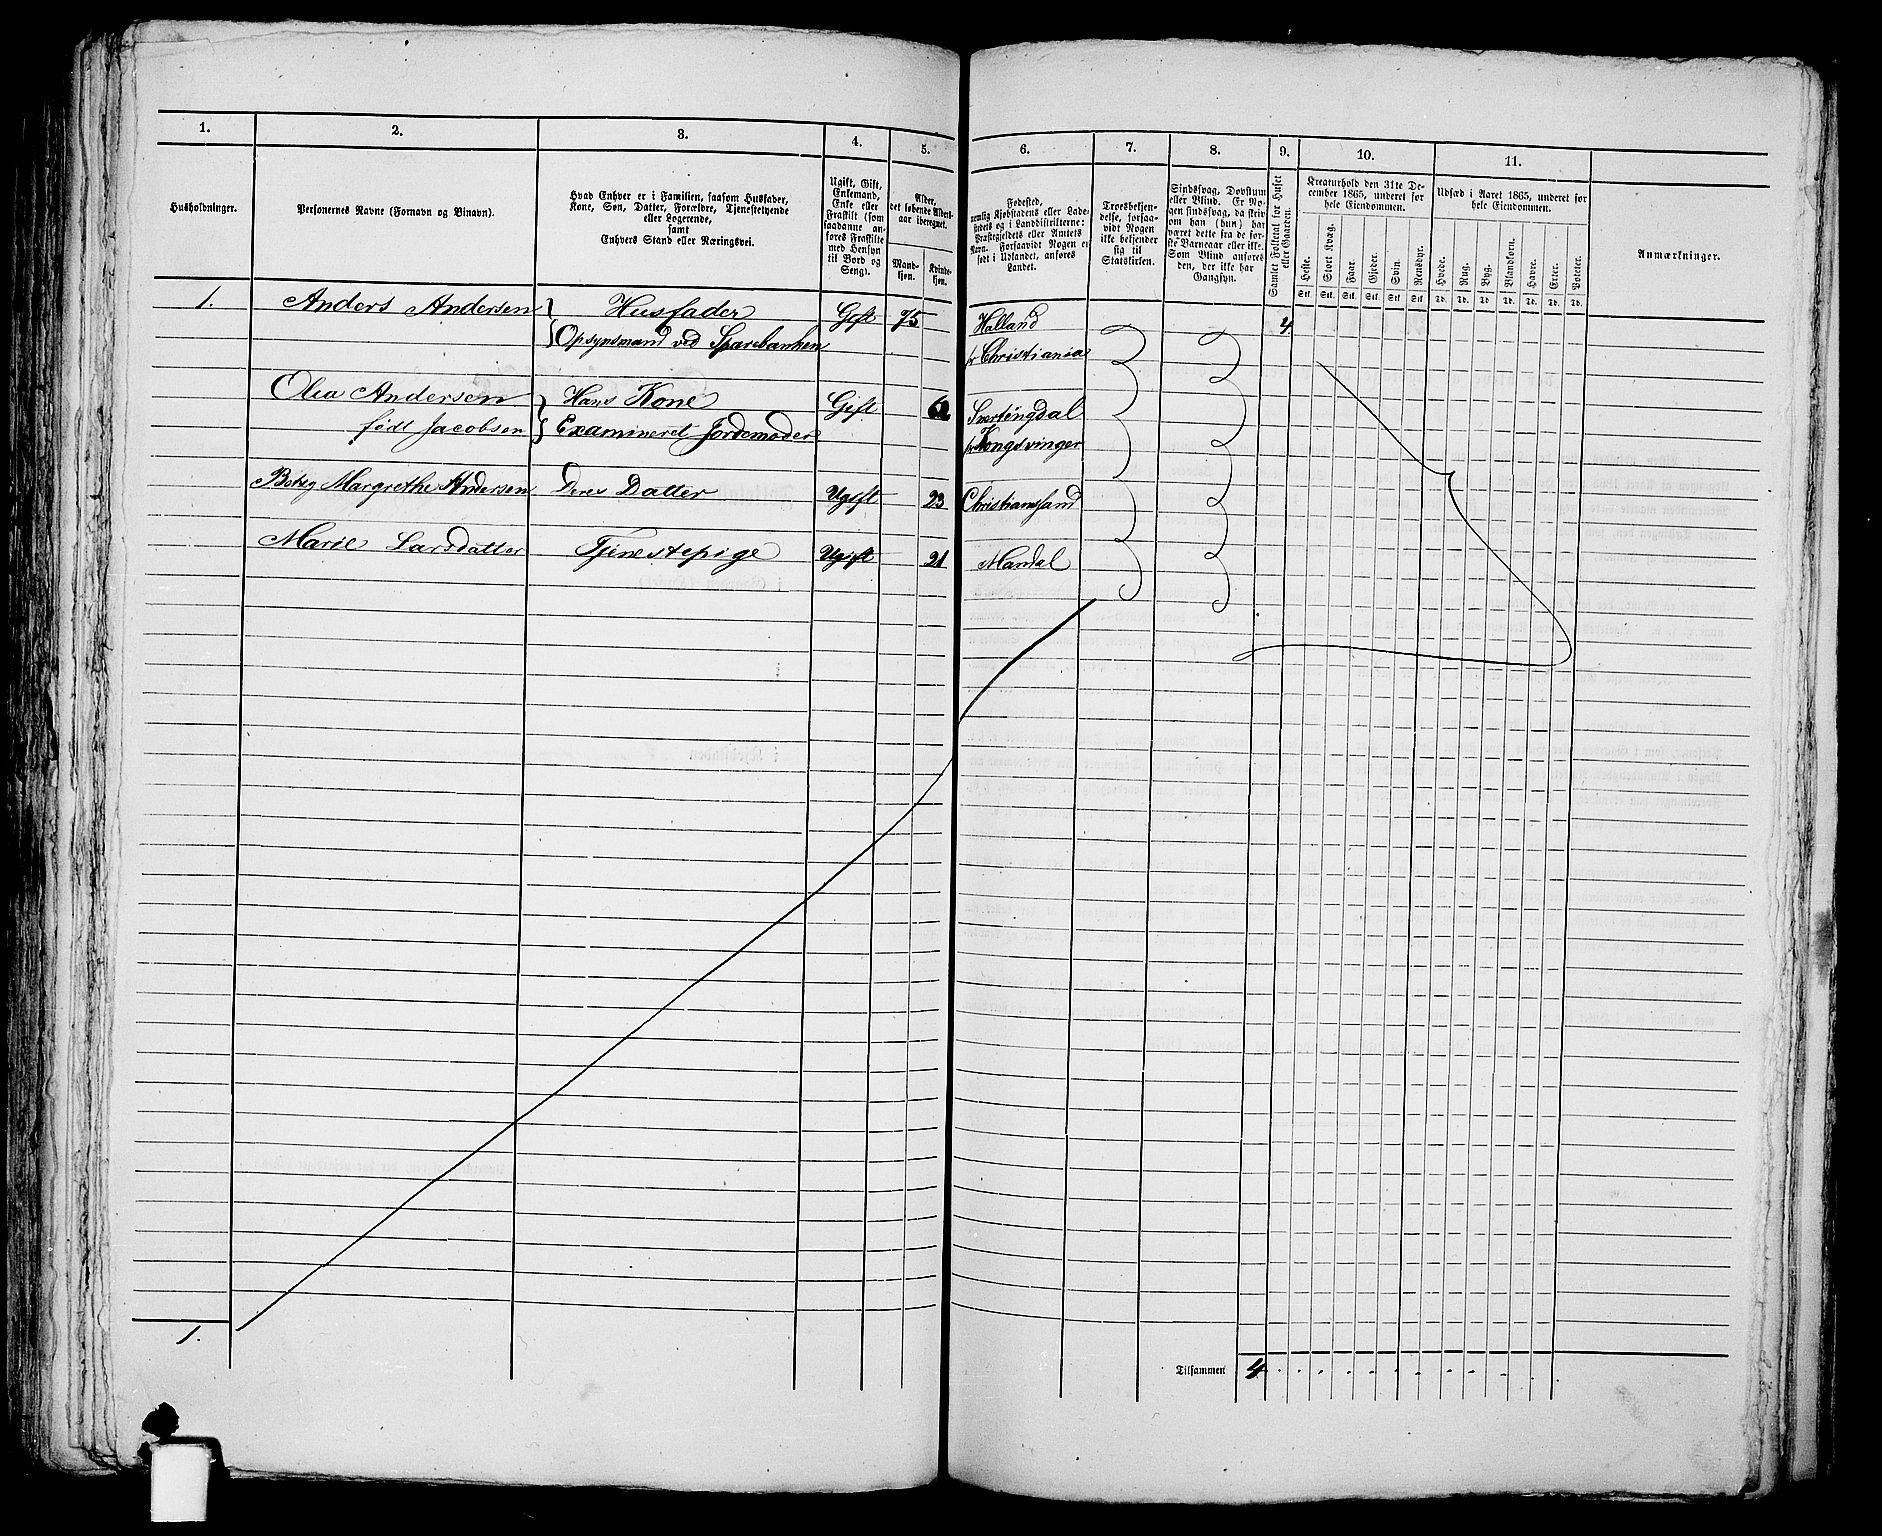 1. 2. 3. 4. 5. 6. 7. 8. 9. 10. 11.
Husholdninger.
Personernes Navne (Fornavn og Binavn).
Hvad Enhver er i Familien, saasom Husfader,
Kone, Søn, Datter, Forældre, Tjenestetyende
eller Logerende,
samt
Enhvers Stand eller Næringsvei.
Ugift, Gift,
Enkemand,
Enke eller
Fraskilt (som
saadanne an-
føres Fraskilte
med Hensyn
til Bord og
Seng).
Alder,
det løbende Alders-
aar iberegnet.
Mand-
kjøn.
Kvinde-
kjøn.
Fødested,
nemlig Kjøbstadens eller Lade-
stedets og i Landdistrikterne:
Præstegjeldets eller Amtets
Navn. Forsaavidt Nogen er
født i Udlandet, anføres
Landet.
Troesbekjen-
delse, forsaa-
vidt Nogen
ikke bekjender
sig til
Statskirken.
Sindssvag, Døvstum
eller Blind. Er No-
gen sindssvag, da skriv
om han (hun) har
været dette fra de før-
ste Barneaar eller ikke.
Som Blind anføres
den, der ikke har
Gangsyn.
Samlet Folketal for Huset
eller Gaarden.
Kreaturhold den 31te De-
cember 1865, underet for
hele Eiendommen.
Heste.
Stort Kvæg.
Faar.
Gjeder.
Svin.
Rensdyr.
Stk. Stk. Stk. Stk. Stk. Stk.
Udsæd i Aaret 1865, underet for
hele Eiendommen.
Hvede.
Rug.
Byg.
Blandkorn.
Havre.
Erter.
Poteter.
Td. Td. Td. Td. Td. Td. Td.
Anmærkninger.
1. Anders Andersen Husfader Gift 75 Halland 4
Opsynsmand ved Sparebanken pr Christiania
Olea Andersen Hans Kone Gift 62 Svertingdal
født Jacobsen Examineret Jordemoder pr Kongsvinger
Margrethe Andersen Deres Datter Ugift 23 Christianssand
Marie Larsdatter Tjenestepige Ugift 21 Mandal
1.
Tilsammen 4